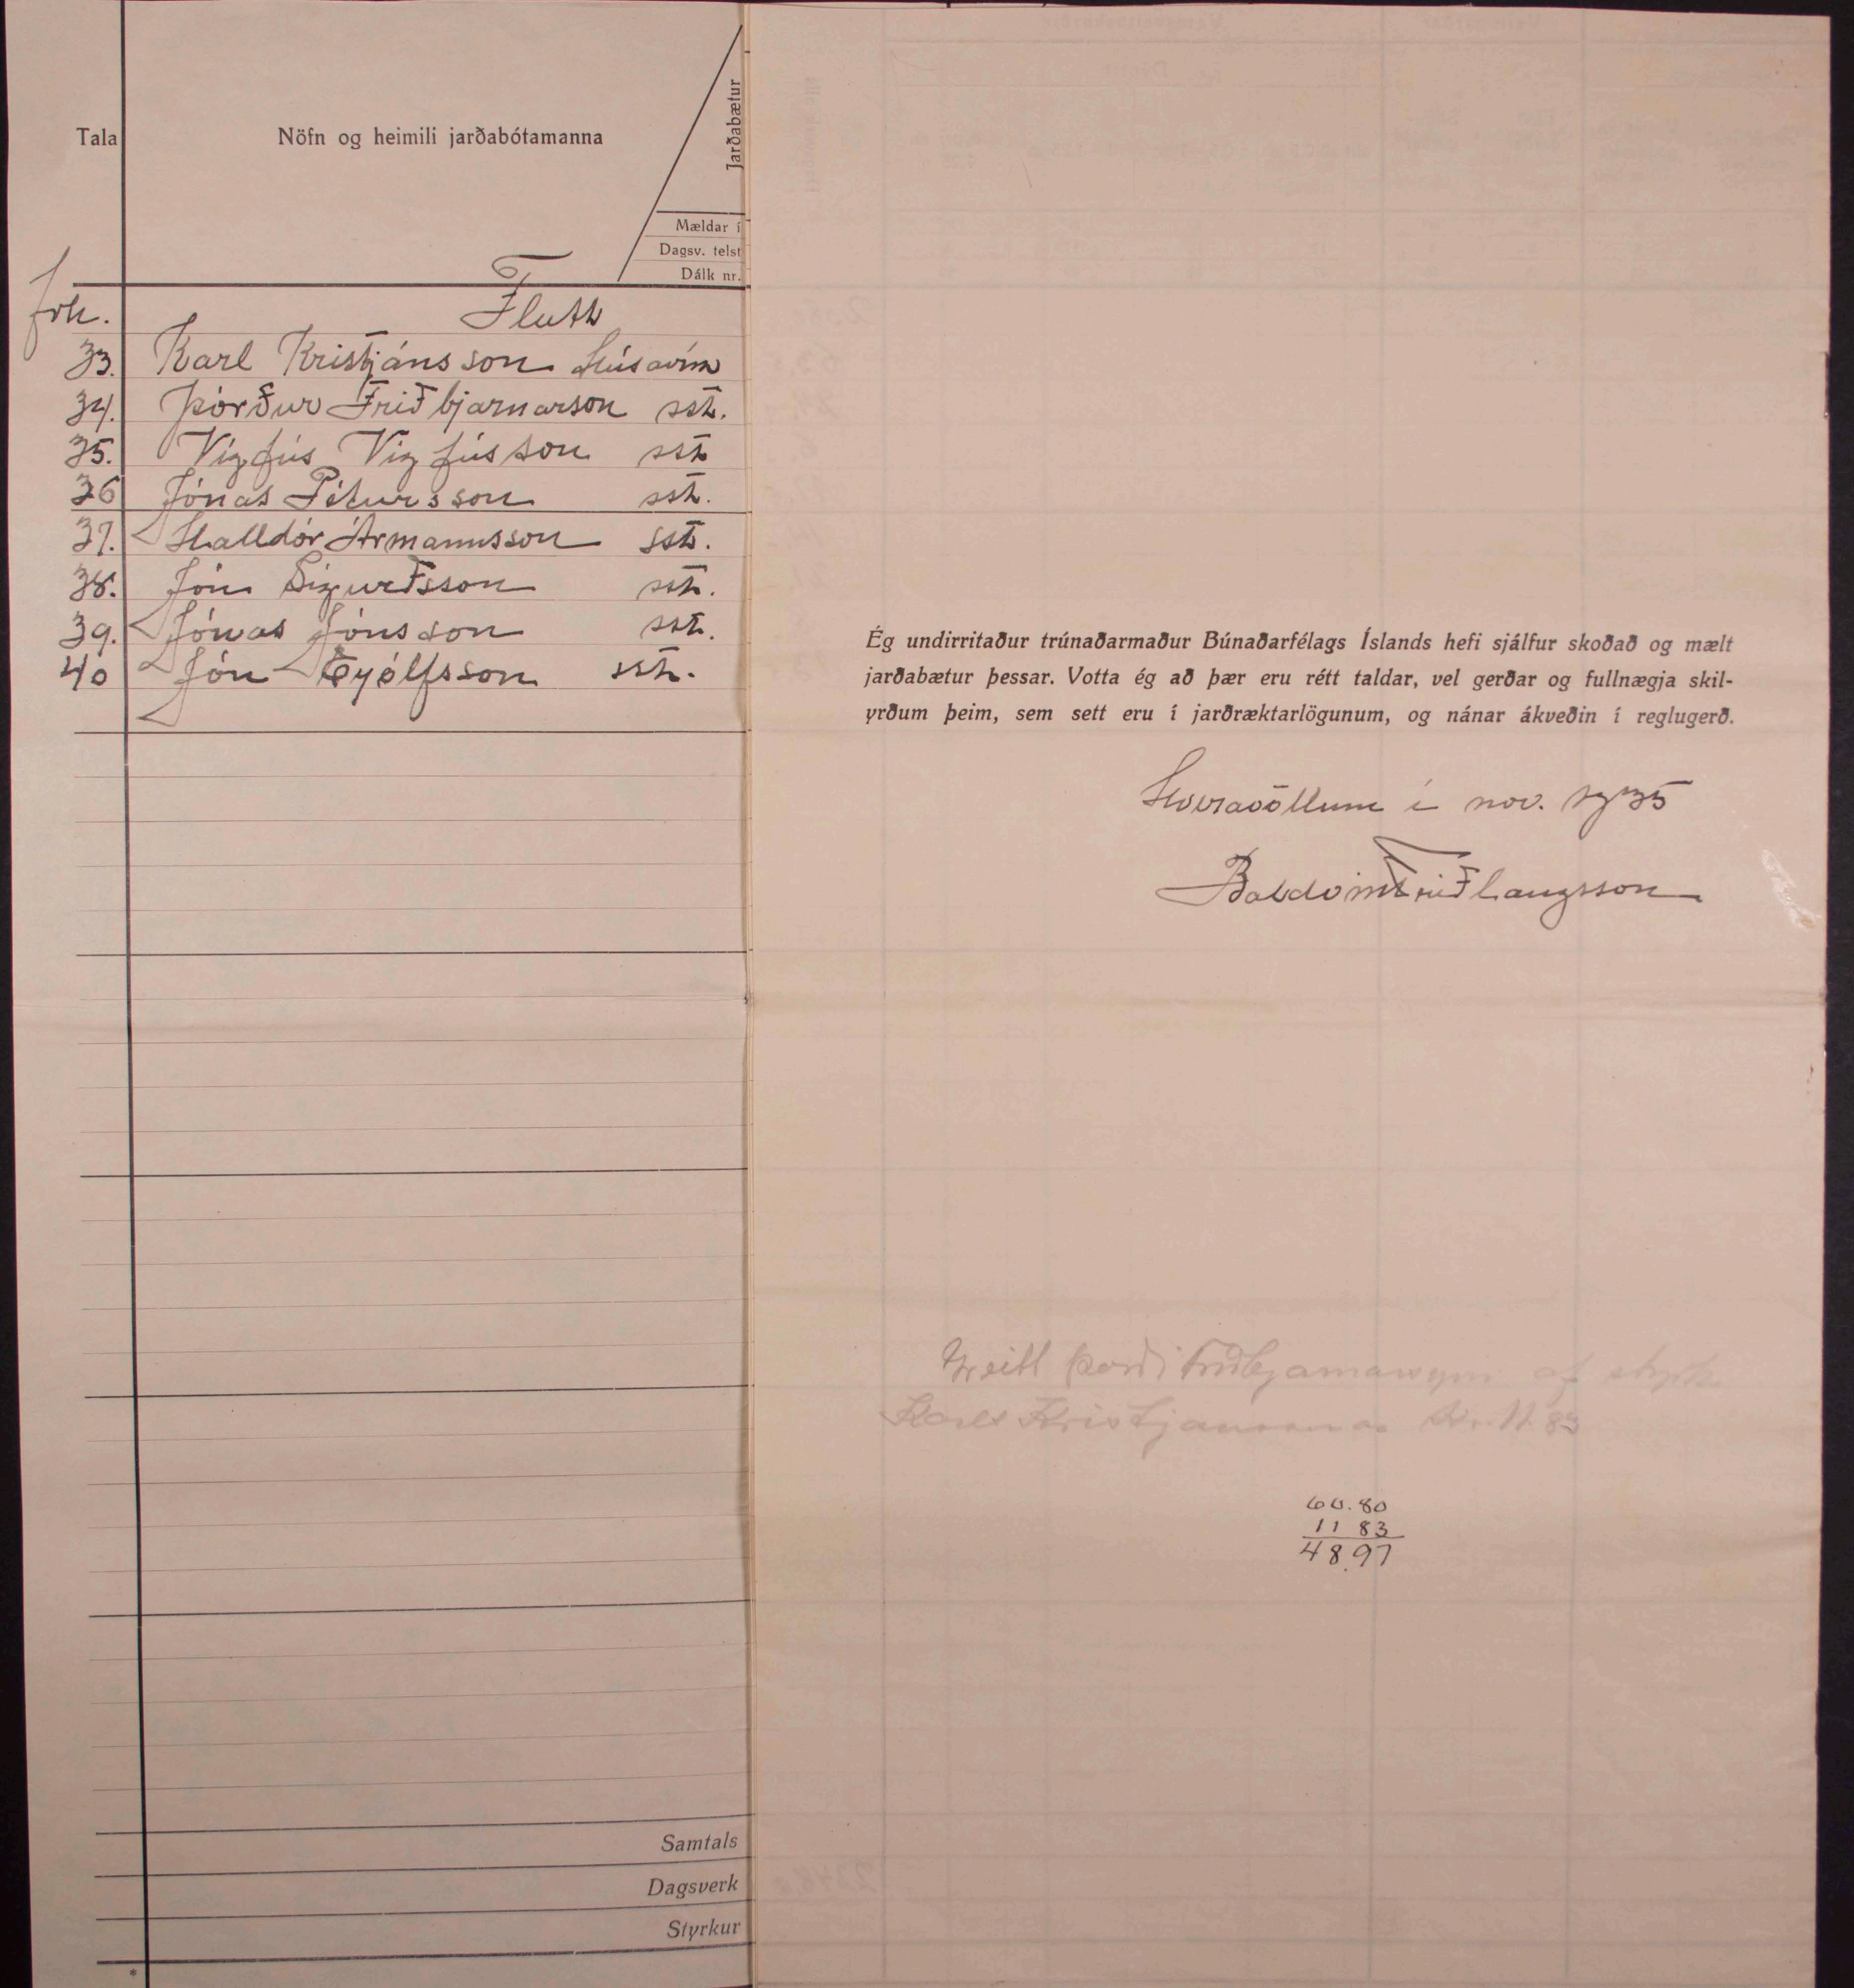 Tala
Nöfn og heimili jarðabótamanna
Jarðabætur
Mældar í
Dagsv. telst
Dálk nr.
frh. Flutt
33. Karl Kristjánsson Húsavík
34. Þórður Friðbjarnarson sst.
35. Vigfús Vigfússon sst
36 Jónas Pétursson sst.
37. Halldór Ármannsson sst.
38. Jón Sigurðsson sst.
39. Jónas Jónsson sst.
40 Jón Eyólfsson sst.
Samtals
Dagsverk
Styrkur
*
Ég undirritaður trúnaðarmaður Búnaðarfélags Íslands hefi sjálfur skoðað og mælt
jarðabætur þessar. Votta ég að þær eru rétt taldar, vel gerðar og fullnægja skil-
yrðum þeim, sem sett eru í jarðræktarlögunum, og nánar ákveðin í reglugerð.
Hveravöllum í nov. 1935
Baldvin Friðlaugsson
Þórði Friðbjarnarsyni af styrk
Karls Kristjánssonar kr. 11.83
60.80
11 83
48.97